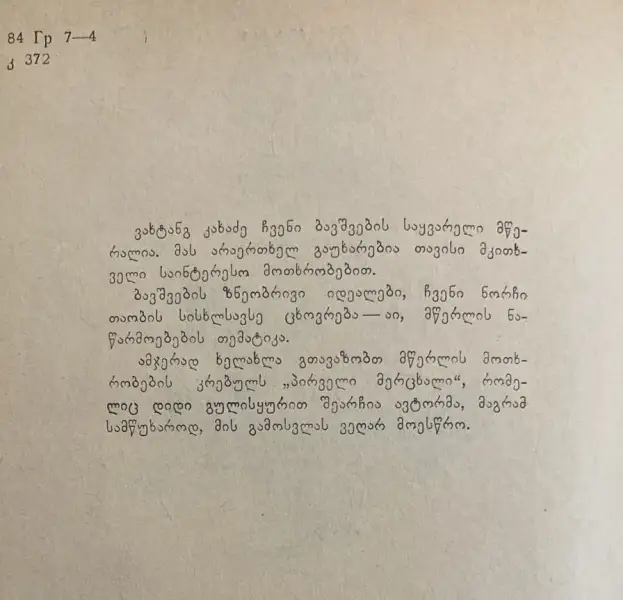 84 Гр 7—4
კ 372
ვახტანგ კახაძე ჩვენი ბავშვების საყვარელი მწე-
რალია. მას არაერთხელ გაუხარებია თავისი მკითხ-
ველი საინტერესო მოთხრობებით.
ბავშვების ზნეობრივი იდეალები, ჩვენი ნორჩი
თაობის სისხლსავსე ცხოვრება — აი, მწერლის ნა-
წარმოებების თემატიკა.
ამჯერად ხელახლა გთავაზობთ მწერლის მოთხ-
რობების კრებულს „პირველი მერცხალი“, რომე-
ლიც დიდი გულისყურით შეარჩია ავტორმა, მაგრამ
სამწუხაროდ, მის გამოსვლას ვეღარ მოესწრო.